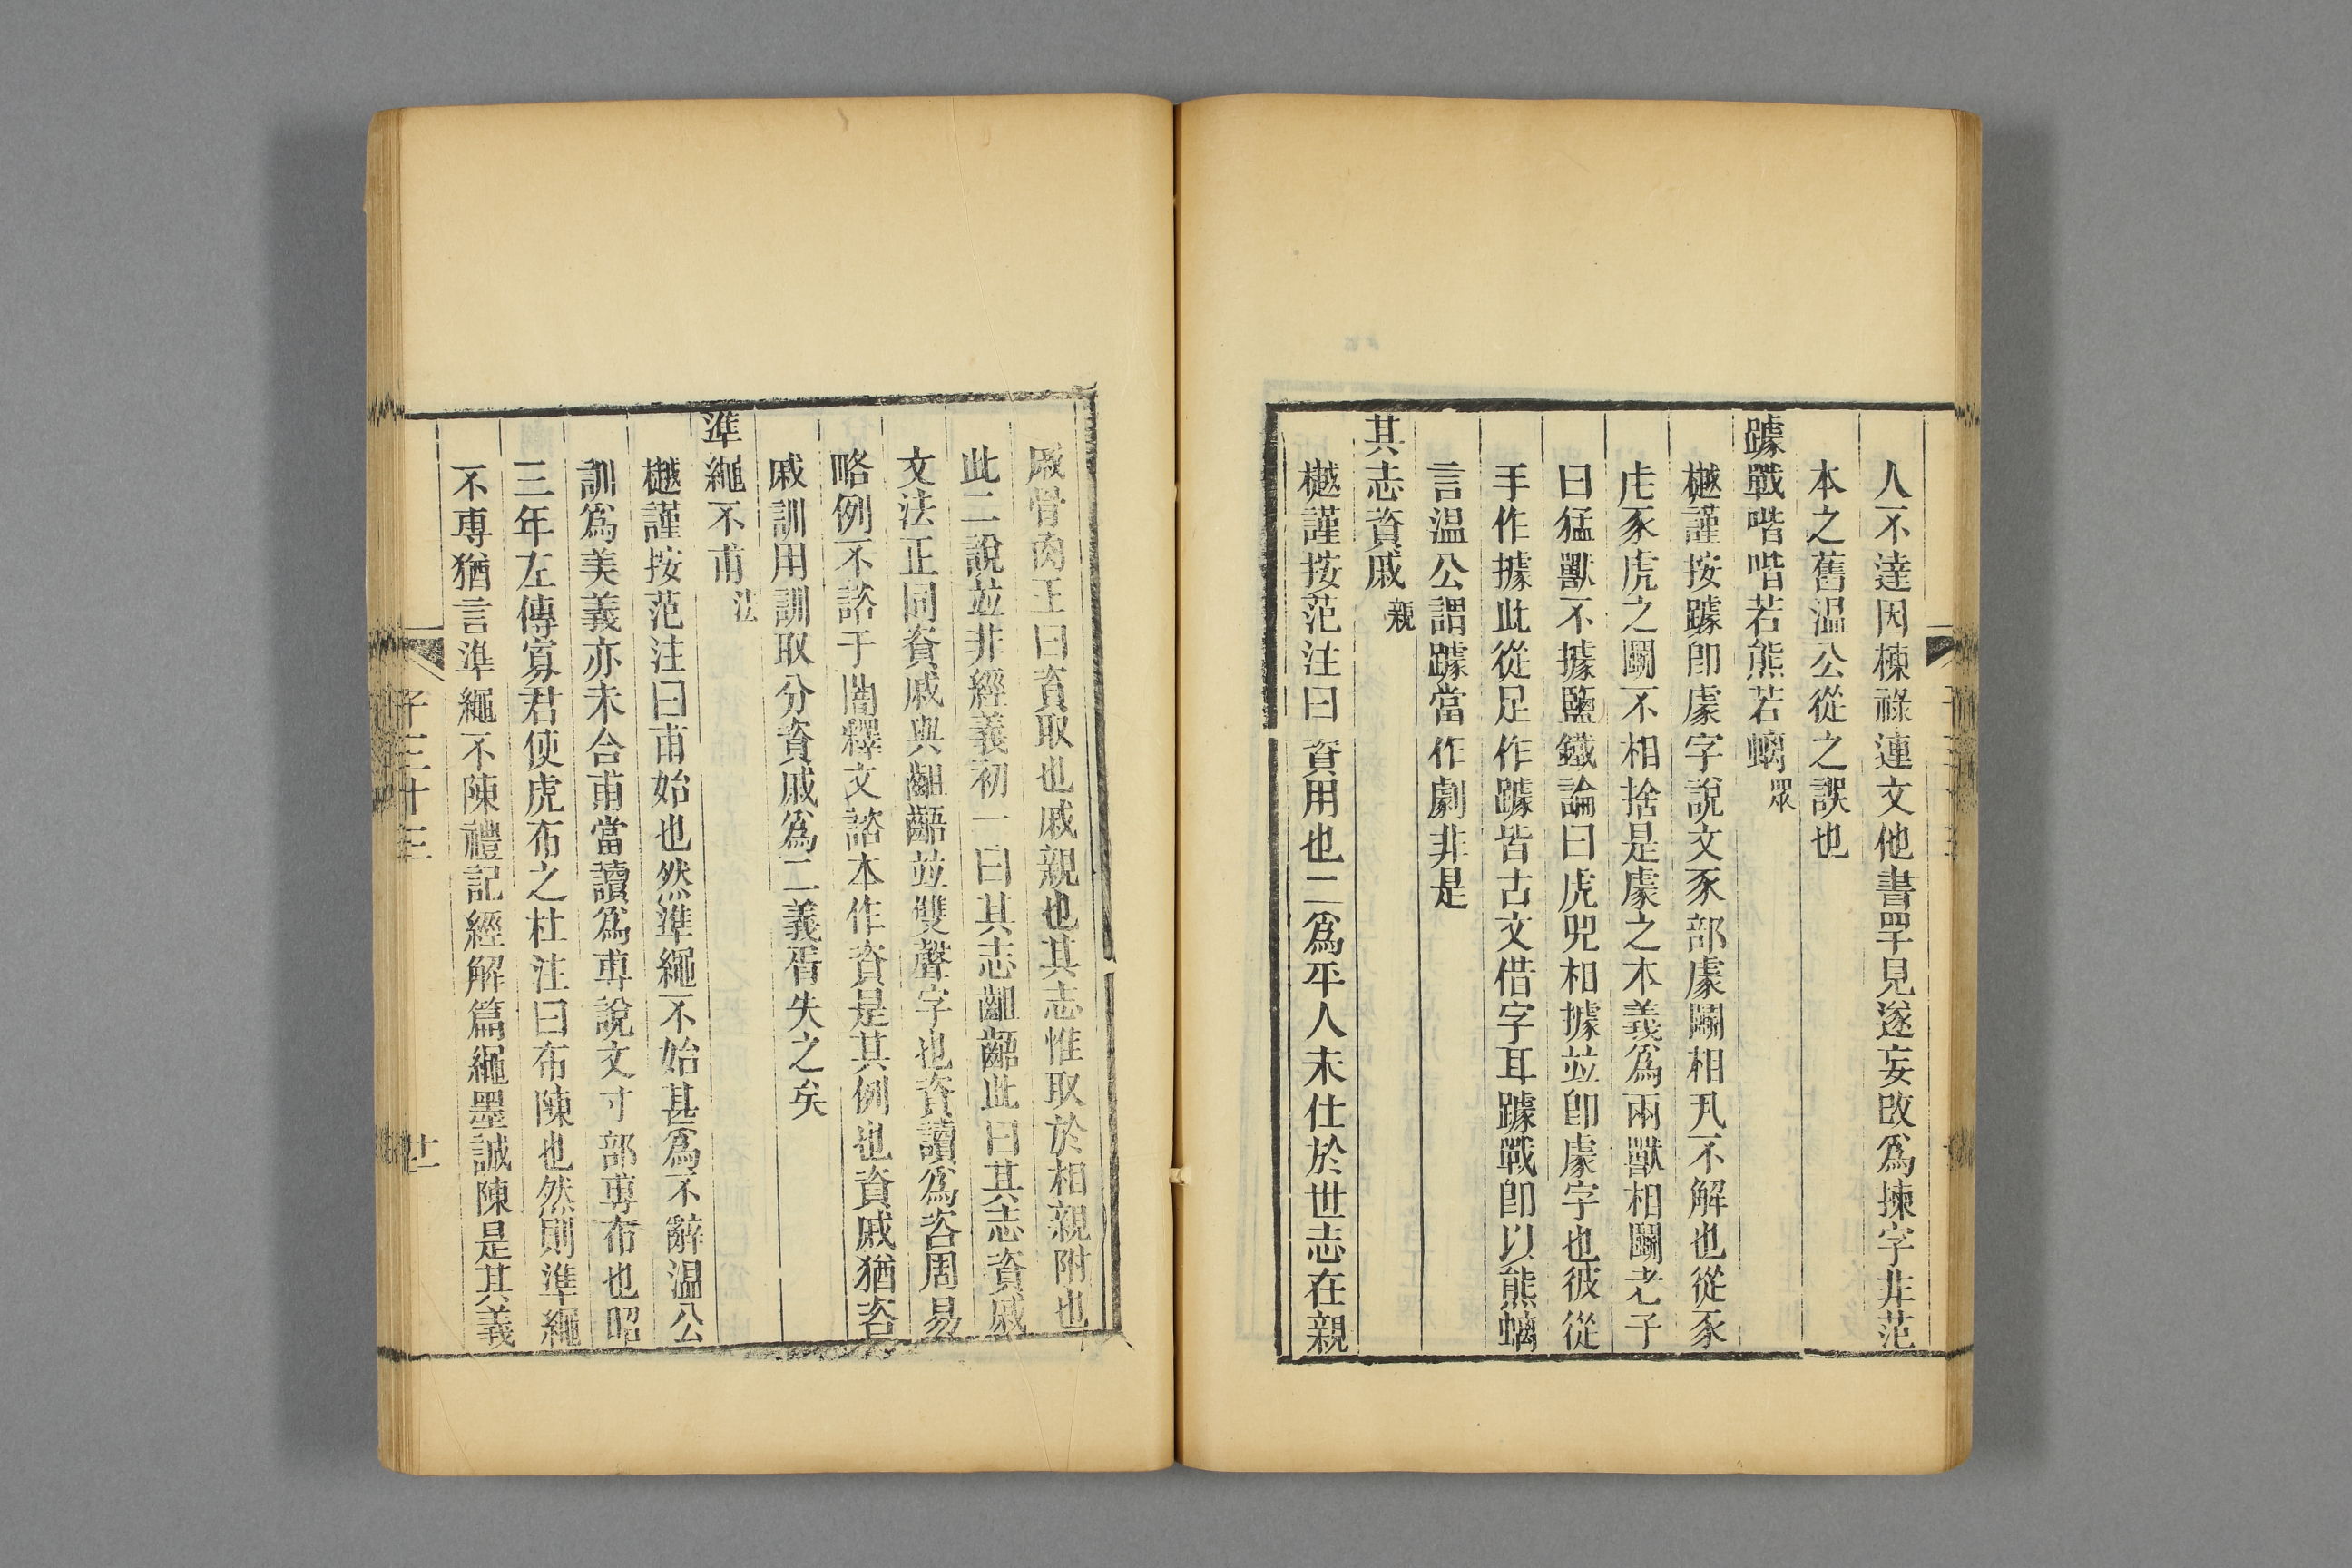 人不達因楝祿連文他書罕見遂妄改爲揀字非范
本之舊温公從之誤也
躆戰喈喈若熊若螭眾
樾謹按躆卽豦字說文豕部豦鬭相丮不解也從豕
虍豕虎之鬭不相捨是豦之本義爲兩獸相鬭老子
曰猛獸不據鹽鐵論曰虎兕相據並卽豦字也彼從
手作據此從足作躆皆古文借字耳躆戰卽以熊螭
言温公謂躆當作劇非是
其志資戚親
樾謹按范注曰資用也二爲平人未仕於世志在親
戚骨肉王曰資取也戚親也其志惟取於相親附也
此二說並非經義初一曰其志齟齬此曰其志資戚
文法正同資戚與齟齬並雙聲字也資讀爲咨周易
略例不諮于闇釋文諮本作資是其例也資戚猶咨
戚訓用訓取分資戚爲二義胥失之矣
準繩不甫法
樾謹按范注曰甫始也然準繩不始甚爲不辭温公
訓爲美義亦未合甫當讀爲尃說文寸部尃布也昭
三年左傳寡君使虎布之杜注曰布陳也然則準繩
不尃猶言準繩不陳禮記經解篇繩墨誠陳是其義
子三十三
廿一